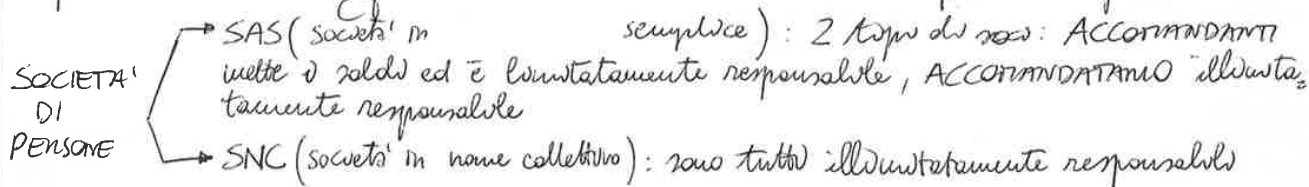 SAS (società in semplice): 2 tipi di soci: ACCOMANDANTI
SOCIETA' DI PERSONE
mette i soldi ed è limitatamente responsabile, ACCOMANDATARIO illimita=
tamente responsabile
SNC (società in nome collettivo): sono tutti illimitatamente responsabili